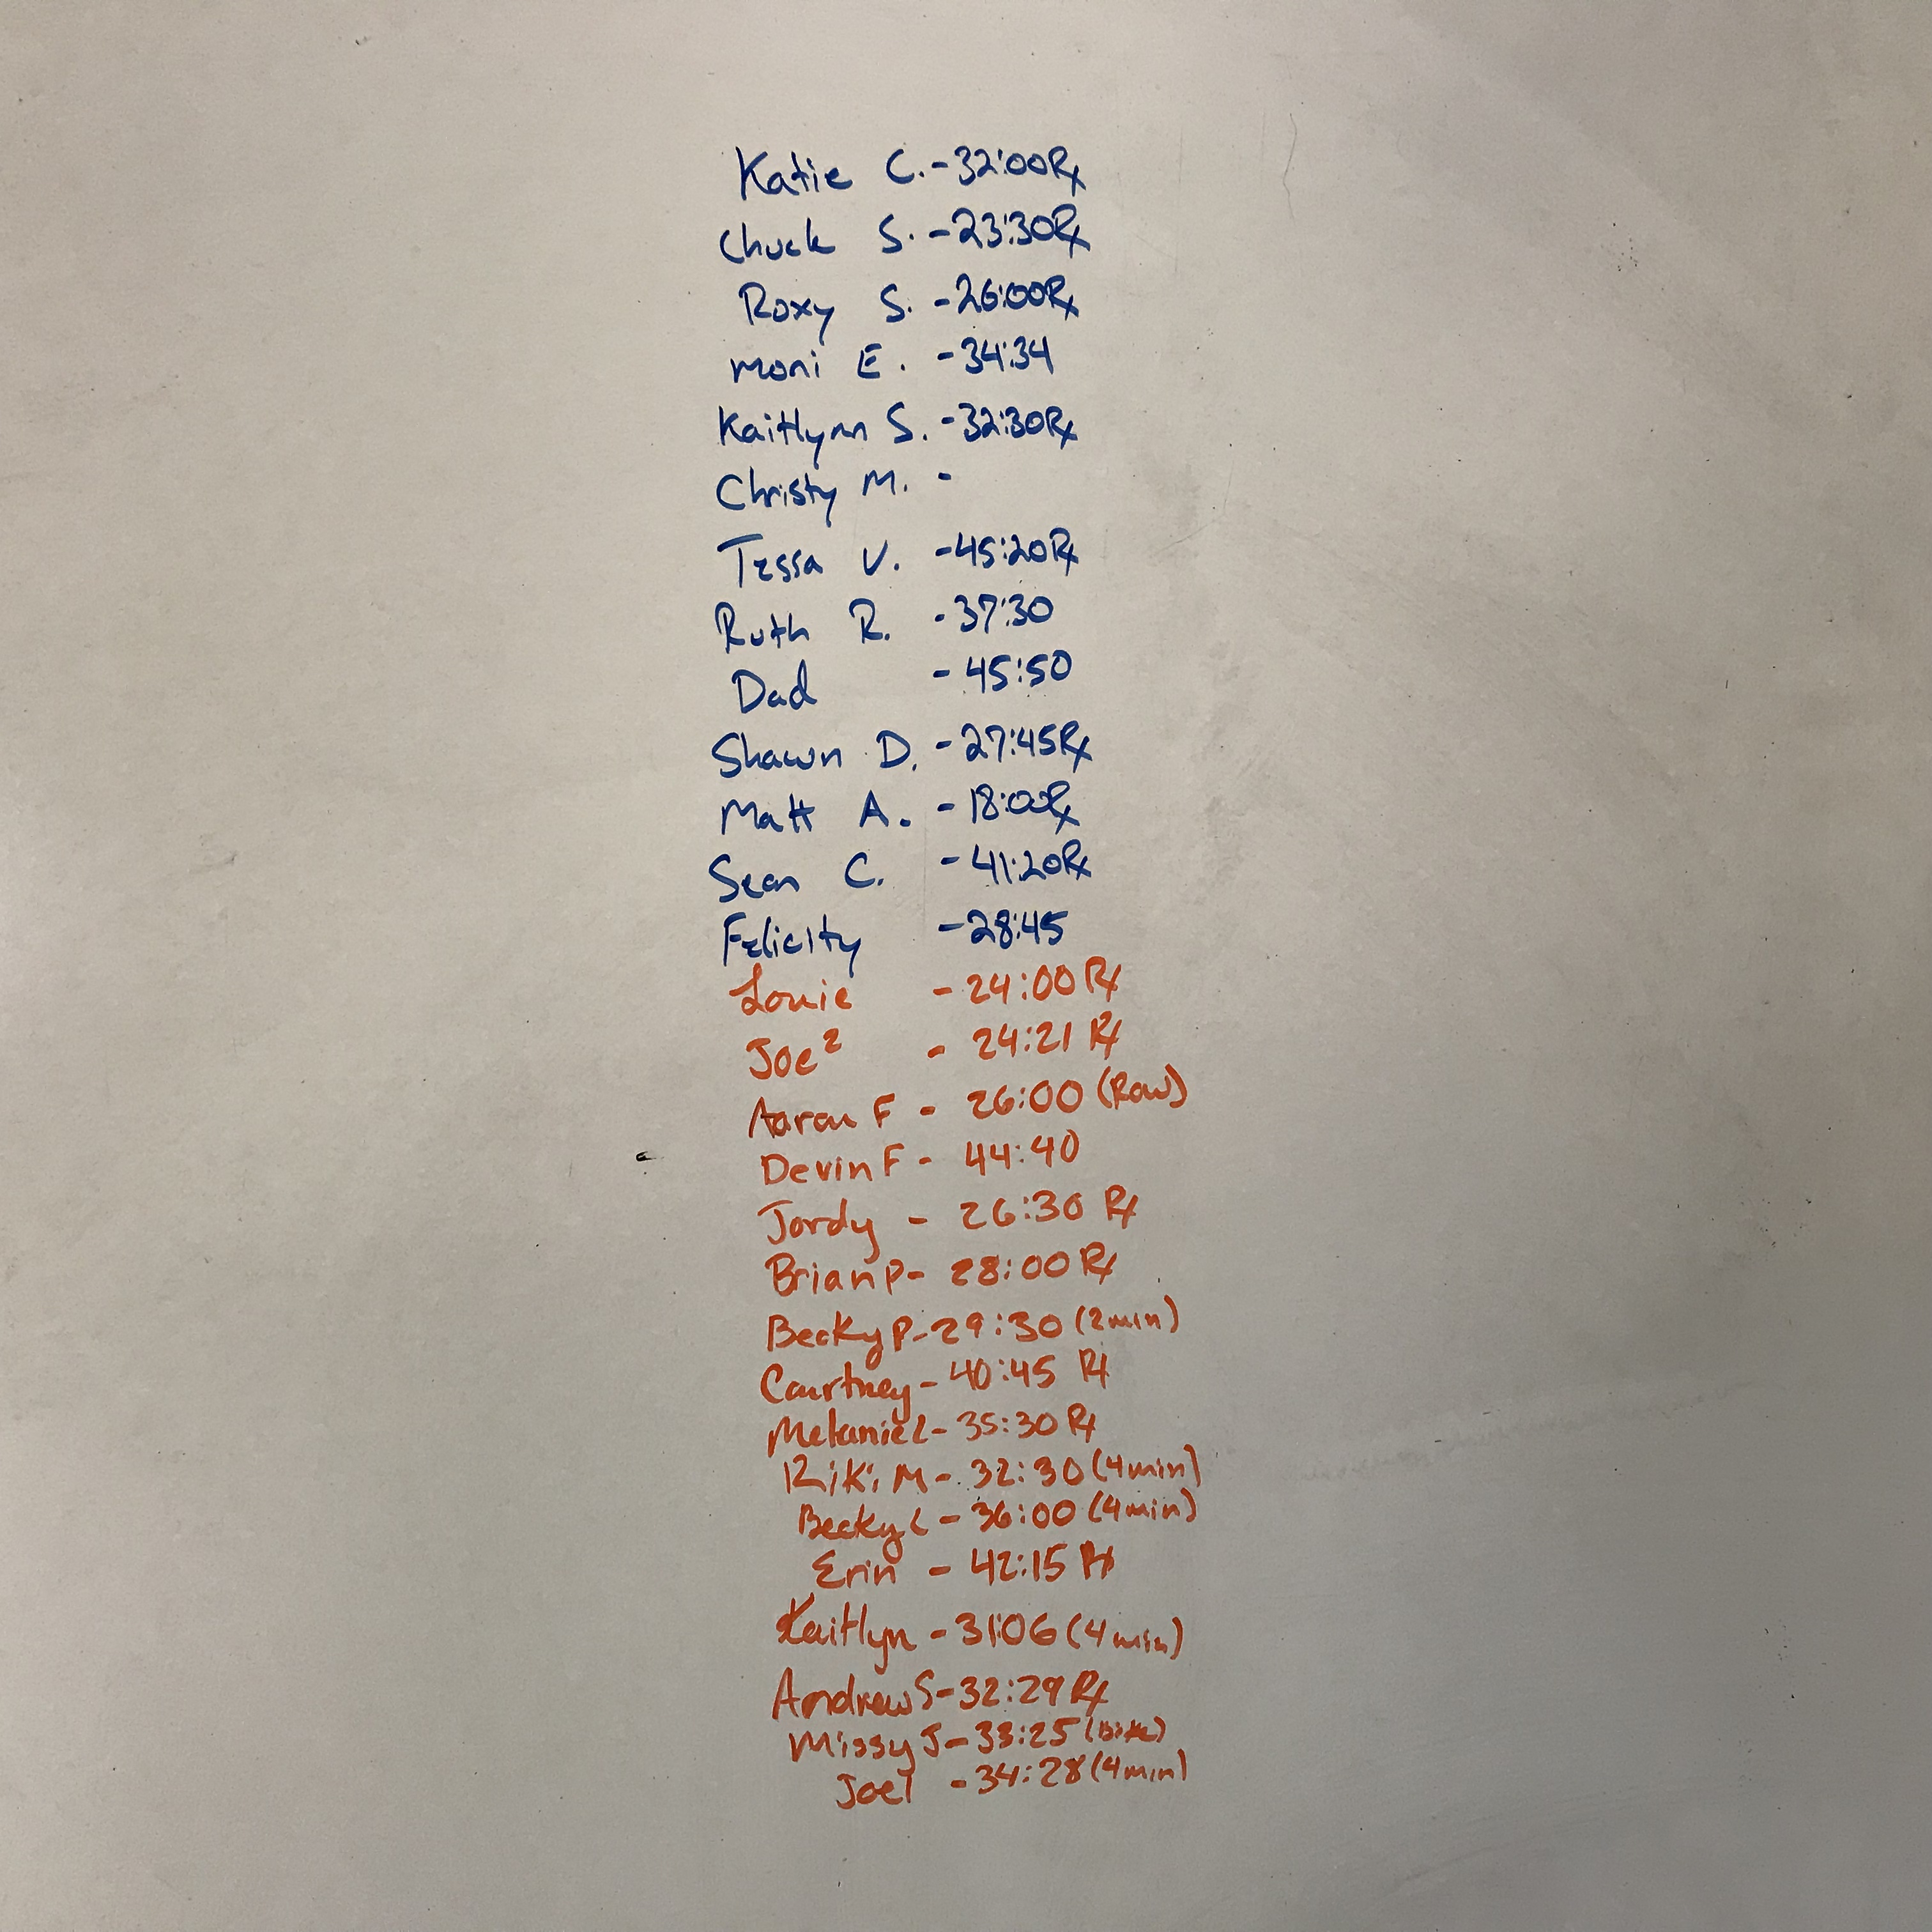 Katie C. - 32:00 Rx
Chuck S. - 23:30 Rx
Roxy S. - 26:00 Rx
Moni E. - 34:34
Kaitlynn S. - 32:30 Rx
Christy M. -
Tessa V. - 45:20 Rx
Ruth R. - 37:30
Dad - 45:50
Shawn D. - 27:45 Rx
Matt A. - 18:00 Rx
Sean C. - 41:20 Rx
Felicity - 28:45
Louie - 24:00 Rx
Joe² - 24:21 Rx
Aaron F - 26:00 (Row)
Devin F - 44:40
Jordy - 26:30 Rx
Brian P - 28:00 Rx
Becky P - 29:30 (2min)
Courtney - 40:45 Rx
Melanie L - 35:30 Rx
Riki M - 32:30 (4min)
Becky L - 36:00 (4min)
Erin - 42:15 Rx
Kaitlyn - 31:06 (4min)
Andrew S - 32:29 Rx
Missy J - 33:25 (Bike)
Joel - 34:28 (4min)